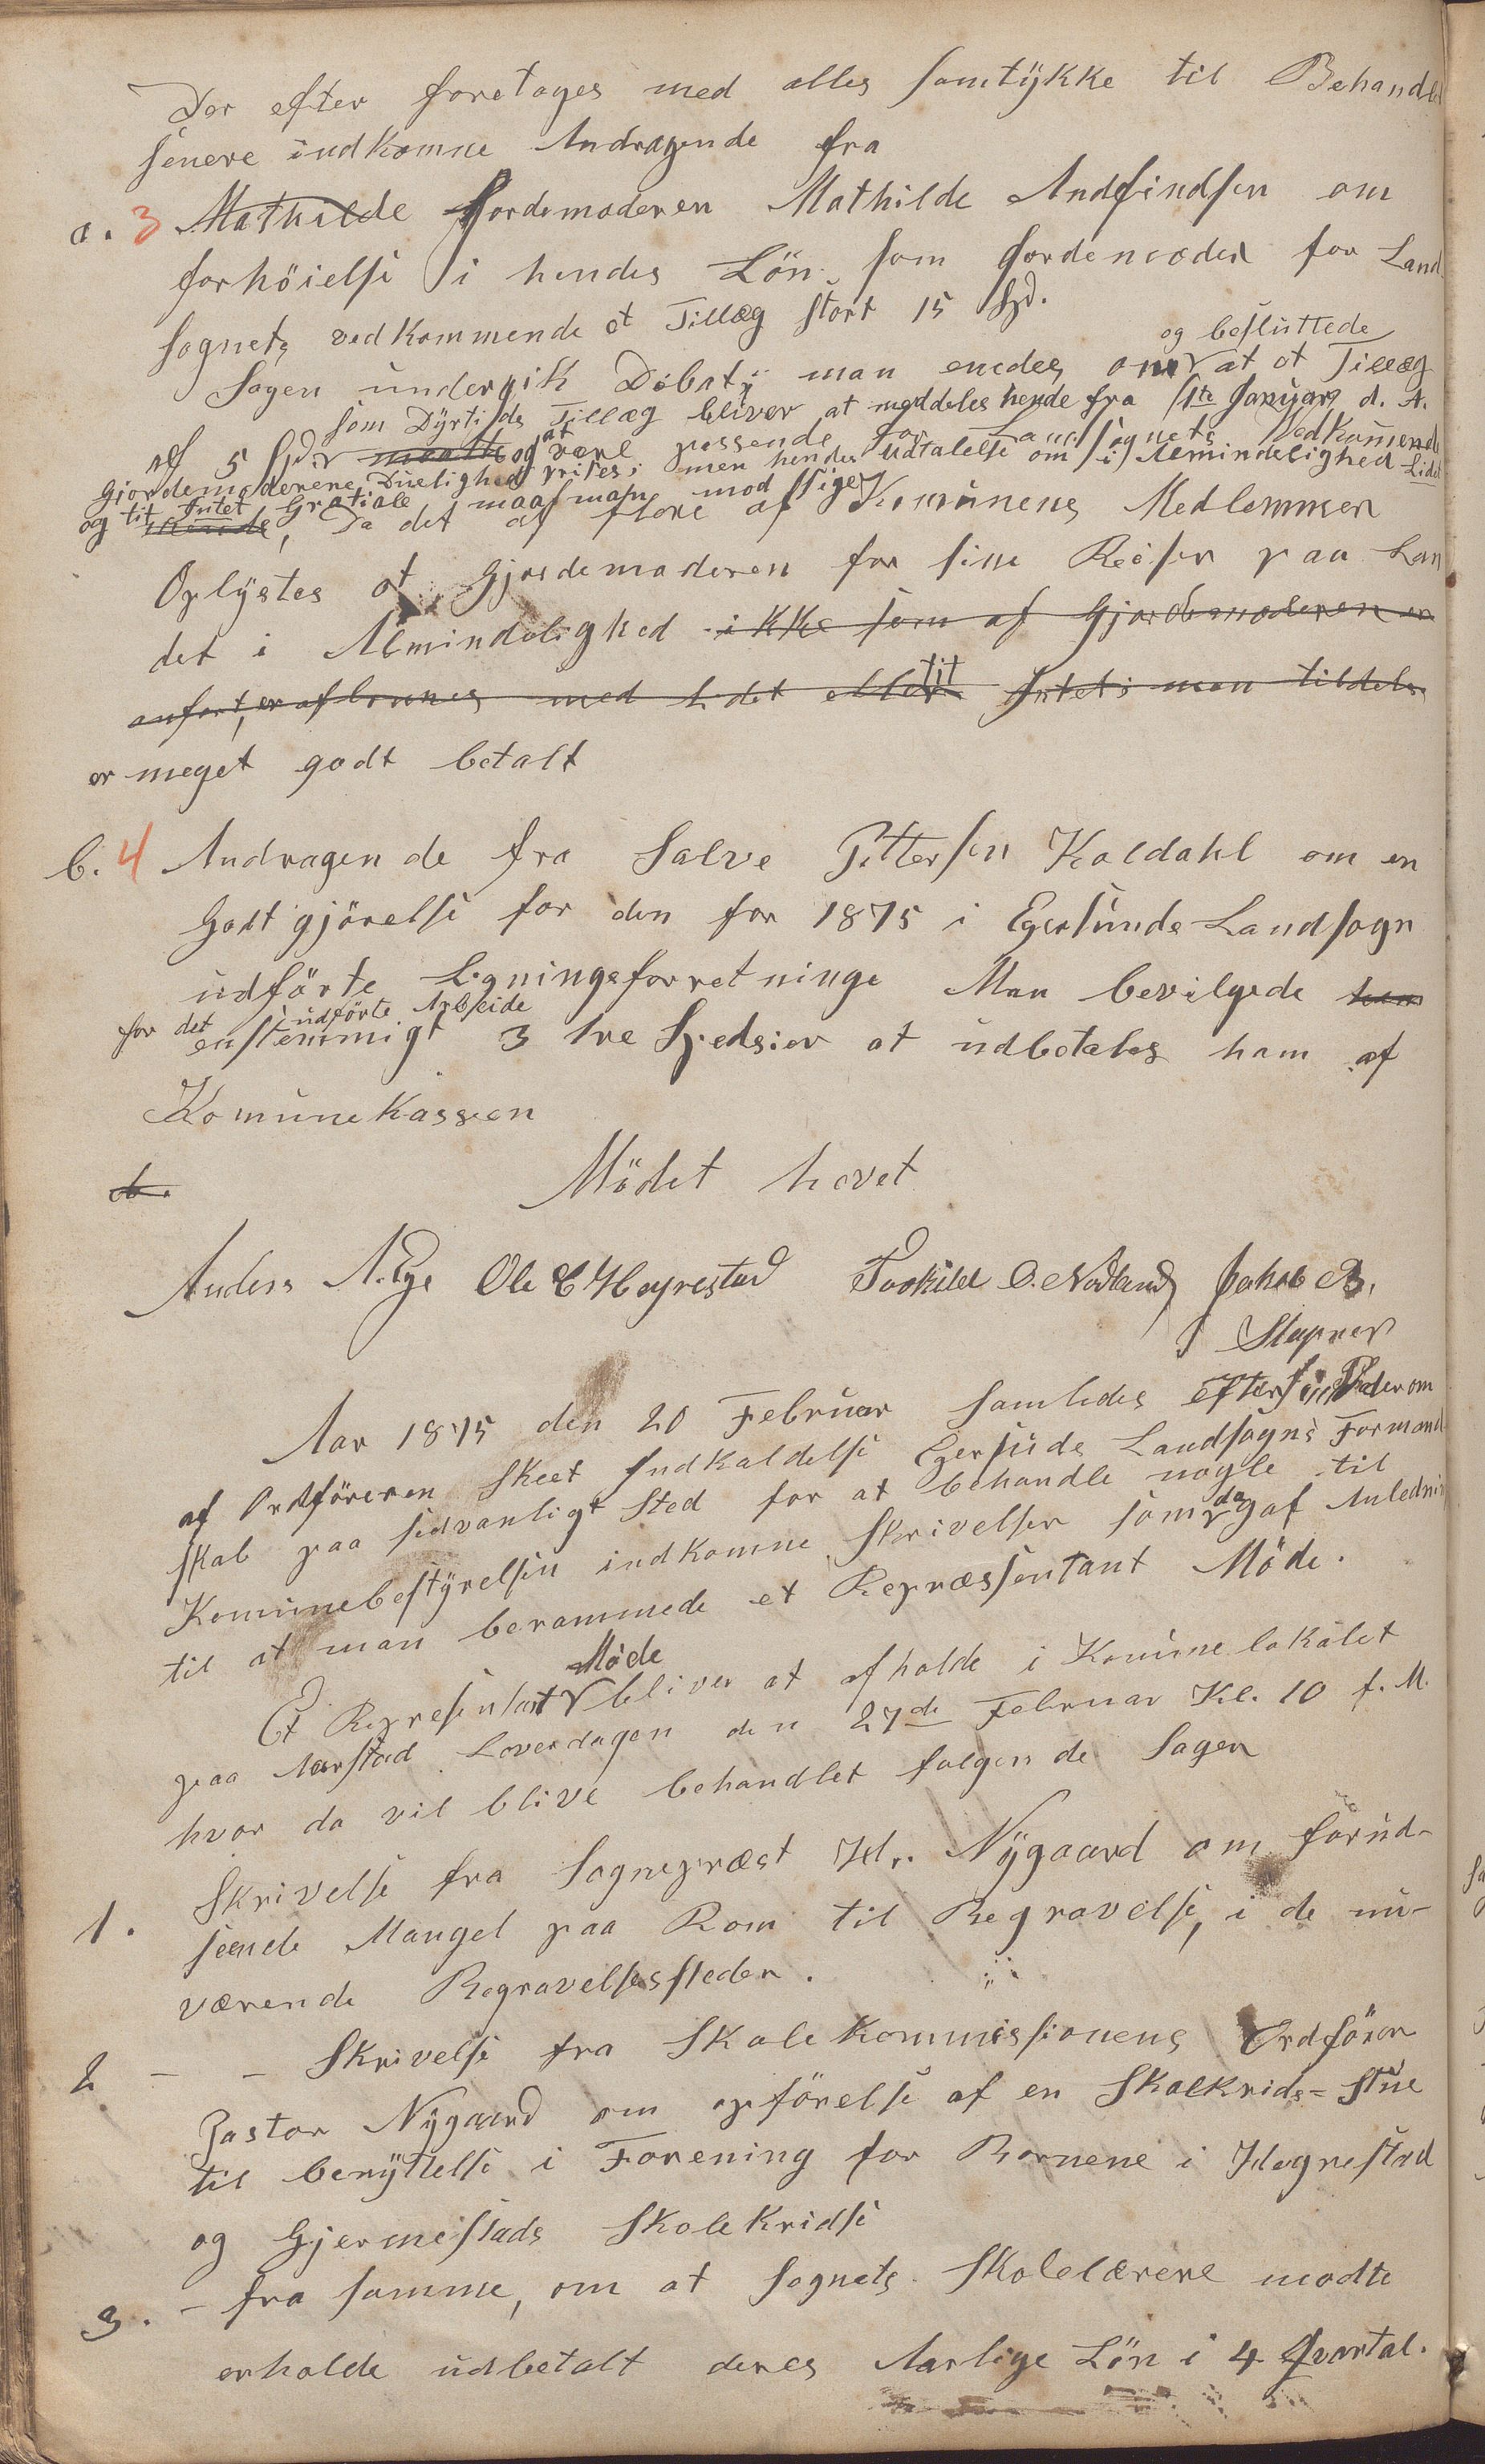 Der efter foretages med alles samtÿkke til Behandl
senere indkomne Andragende fra
a. 3 Mathilde Jordemoderen Mathilde Andfindsen om
forhöielse i hendes Lön som Jordemoder for Land
sognets vedkommende et Tillæg stort 15 Spd.
og besluttede
Sagen undergik Debat; man enedes om at et Tillæg
som Dÿrtids Tillæg bliver at meddeles hende fra 1ste Januar d. A.
af 5 Spdlr maatte og at være passende for Landsognets Vedkomende
Gjordemoderens Duelighed prises; men hendes Udtalelse om i Almindelighed Lidet
og tit Intet Gratiale maa man modsige
, Da det af flere af Komunens Medlemmer
Oplÿstes at Gjordemoderen for sine Reiser paa Lan
det i Almindelighed ikke som af Gjordemoderen er
anfort, er aflonnes med lidet eller tit Intet; men tildels
er meget godt betalt
b. 4 Andragende fra Salve Pettersen Koldahl om en
Godtgjörelse for den for 1875 i Egersunds Landsogn
udförte Ligningsforretninge Man bevilgede ham
for det udförte Arbeide
enstemmigt 3 tre Spedsier at udbetales ham af
Komunekassen
Mödet hevet
Anders A. Ege Ole E Høgrestad Torkild O. Nodland Jakob A.
Stapnes
Aar 1875 den 20 Februar samledes efter foruden om
af Ordföreren skeet Indkaldelse Egersuds Landsogns Formand
skab paa sedvanligt Sted for at behandle nogle til
Komunebestÿrelsen indkomne Skrivelser som da gaf Anlednin
til at man berammede et Repræssentant Möde.
Et Represintat Möde bliver at afholde i Komunelokalet
paa Aarstad Loverdagen den 27de Februar Kl. 10 f. M.
hvor da vil blive behandlet folgende Sager
1. Skrivelse fra Sognepræst Hr. Nÿgaard om forud-
seende Mangel paa Rom til Begravelse, i de nu-
værende Begravelsessteder.
2 - - Skrivelse fra Skolekommissionens Ordförer
Pastor Nÿgaard om opförelse af en Skolkrids-Stue
til benÿttelse i Forening for Bornene i Hegrestad
og Gjermestads Skolekridse
3. - fra samme, om at Sognets Skolelærere modte
erholde udbetalt deres Aarlige Lön i 4 Qvartal.